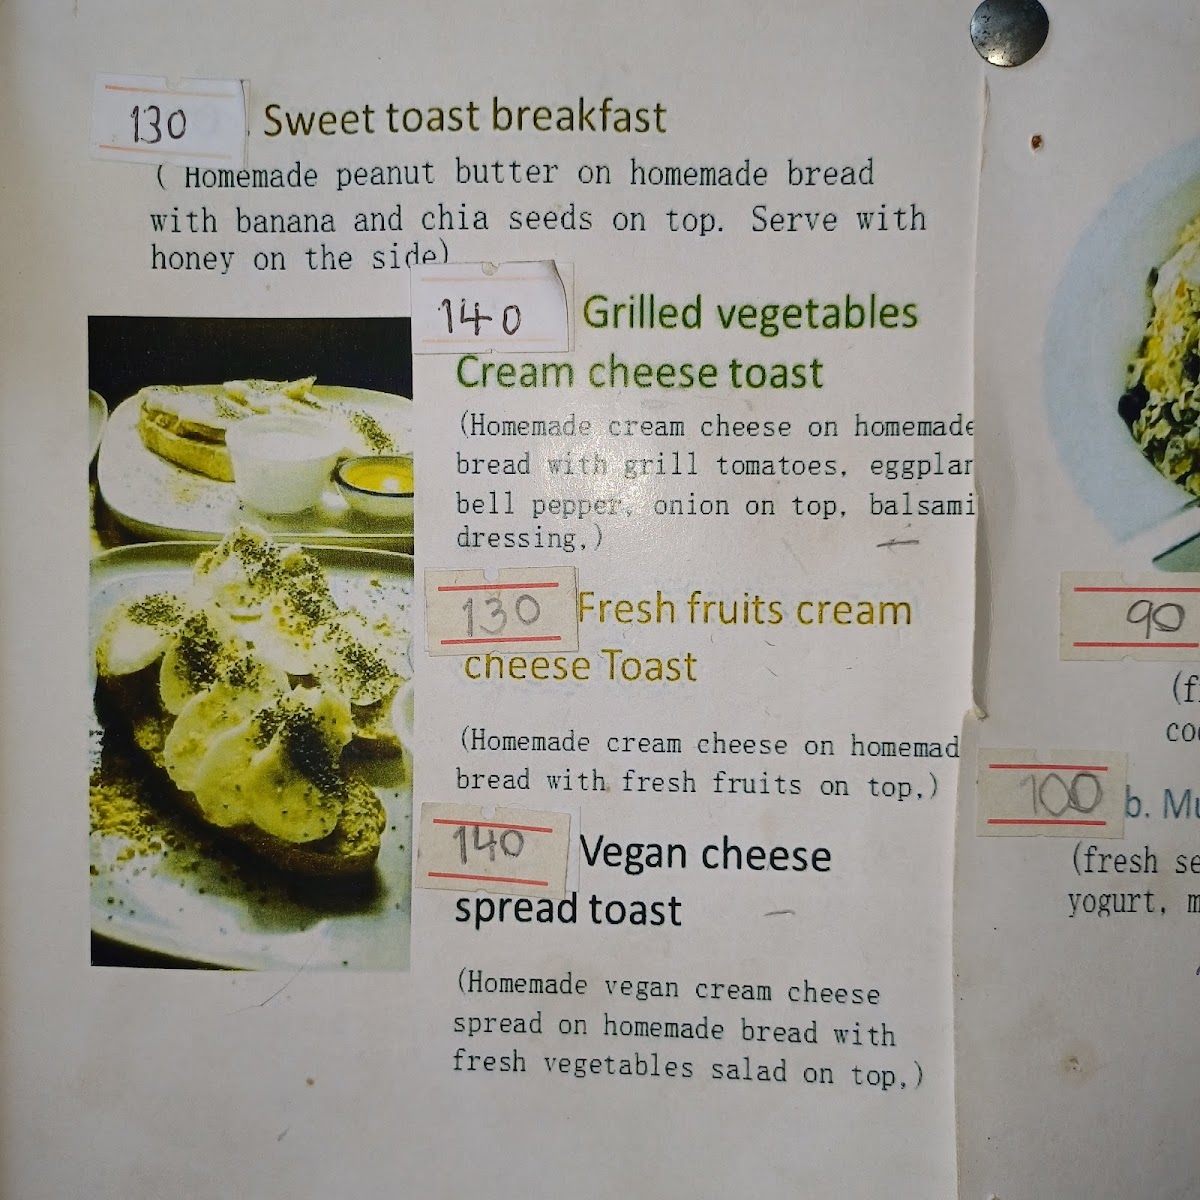 130 Sweet toast breakfast
( Homemade peanut butter on homemade bread
with banana and chia seeds on top. Serve with
honey on the side)
140 Grilled vegetables
Cream cheese toast
(Homemade cream cheese on homemade
bread with grill tomatoes, eggplan
bell pepper, onion on top, balsami
dressing,)
130 Fresh fruits cream
cheese Toast
(Homemade cream cheese on homemad
bread with fresh fruits on top,)
140 Vegan cheese
spread toast
(Homemade vegan cream cheese
spread on homemade bread with
fresh vegetables salad on top,)
90
(f
co
100 b. Mu
(fresh se
yogurt, m